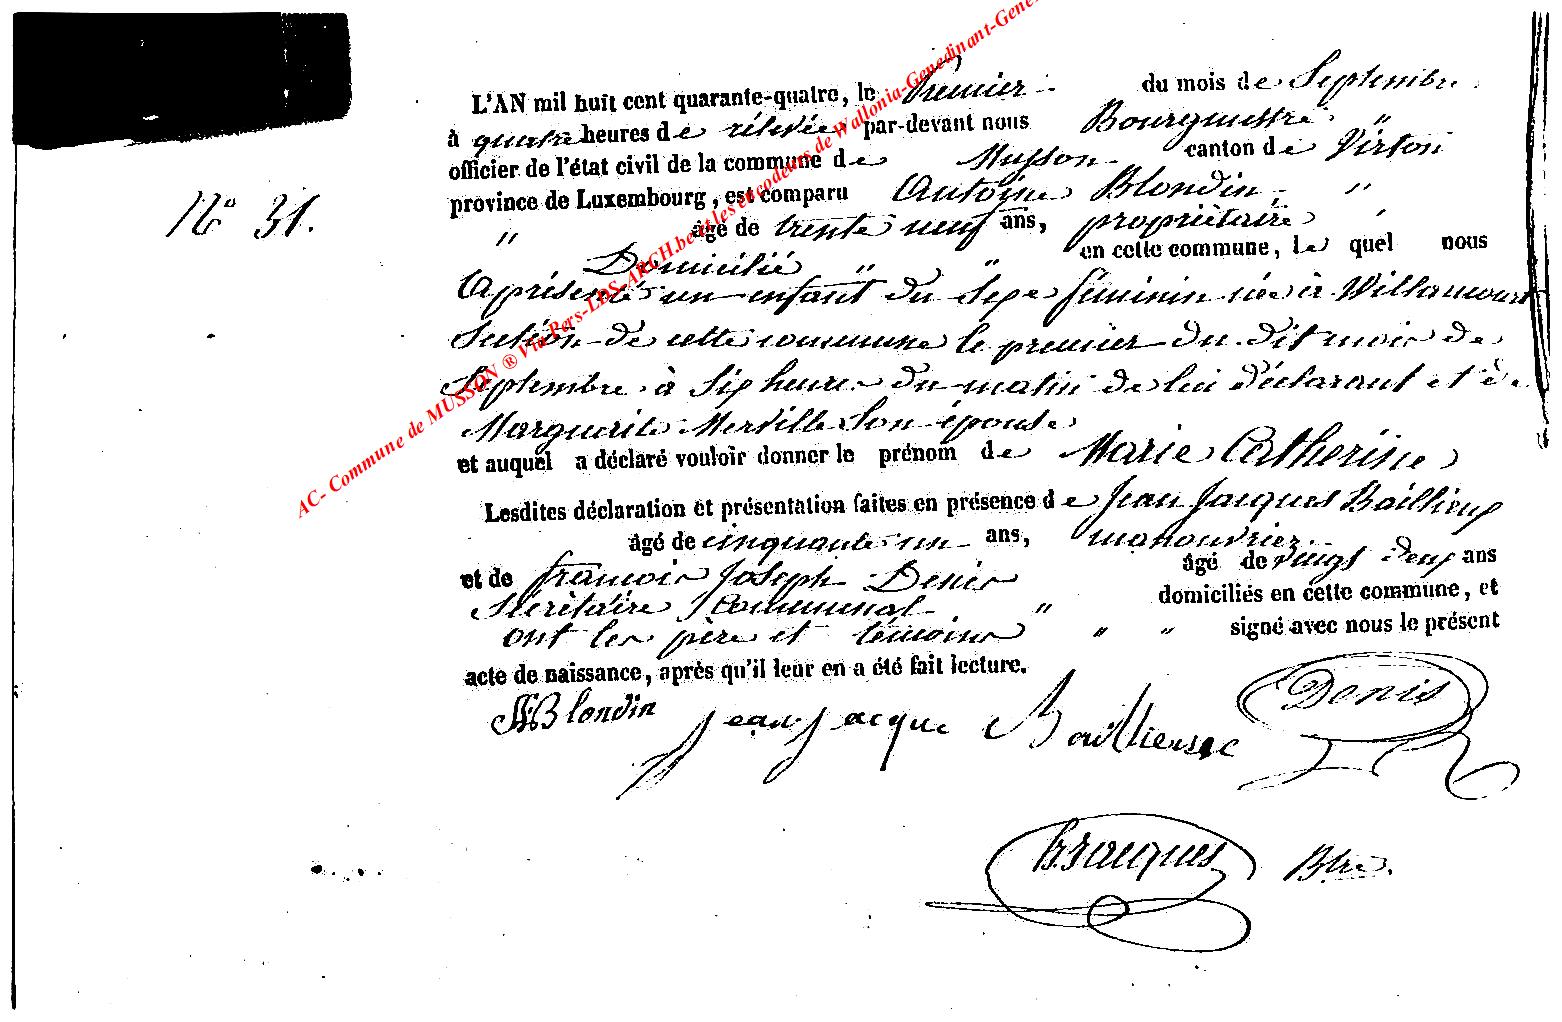 L'AN mil huit cent quarante-quatre, le Premier du mois de Septembre
à quatre heures de rélévée par-devant nous Bourgmestre "
officier de l'état civil de la commune de Musson canton de Virton
province de Luxembourg, est comparu Antoine Blondin "
N° 31.
" âgé de trente neuf ans, propriétaire "
Domicilié " " en cette commune, le quel nous
a présenté un enfant du sexe féminin née à Willancourt
section de cette commune le premier du dit mois de
Septembre à six heures du matin de lui déclarant et de
Marguerite Merville son épouse
et auquel a déclaré vouloir donner le prénom de Marie Catherine
Lesdites déclaration et présentation faites en présence de Jean Jacques Baillieux
âgé de cinquante un ans, manouvrier
et de françois Joseph Denis âgé de vingt deux ans
Sécrétaire Communal " domiciliés en cette commune, et
ont les père et témoins " " signé avec nous le présent
acte de naissance, après qu'il leur en a été fait lecture.
Blondin Jean Jacque Denis
Bre.
AC- Commune de MUSSON ® Via Pers-LDS-ARCH.be et les encodeurs de Wallonia-Genedinant-Gene